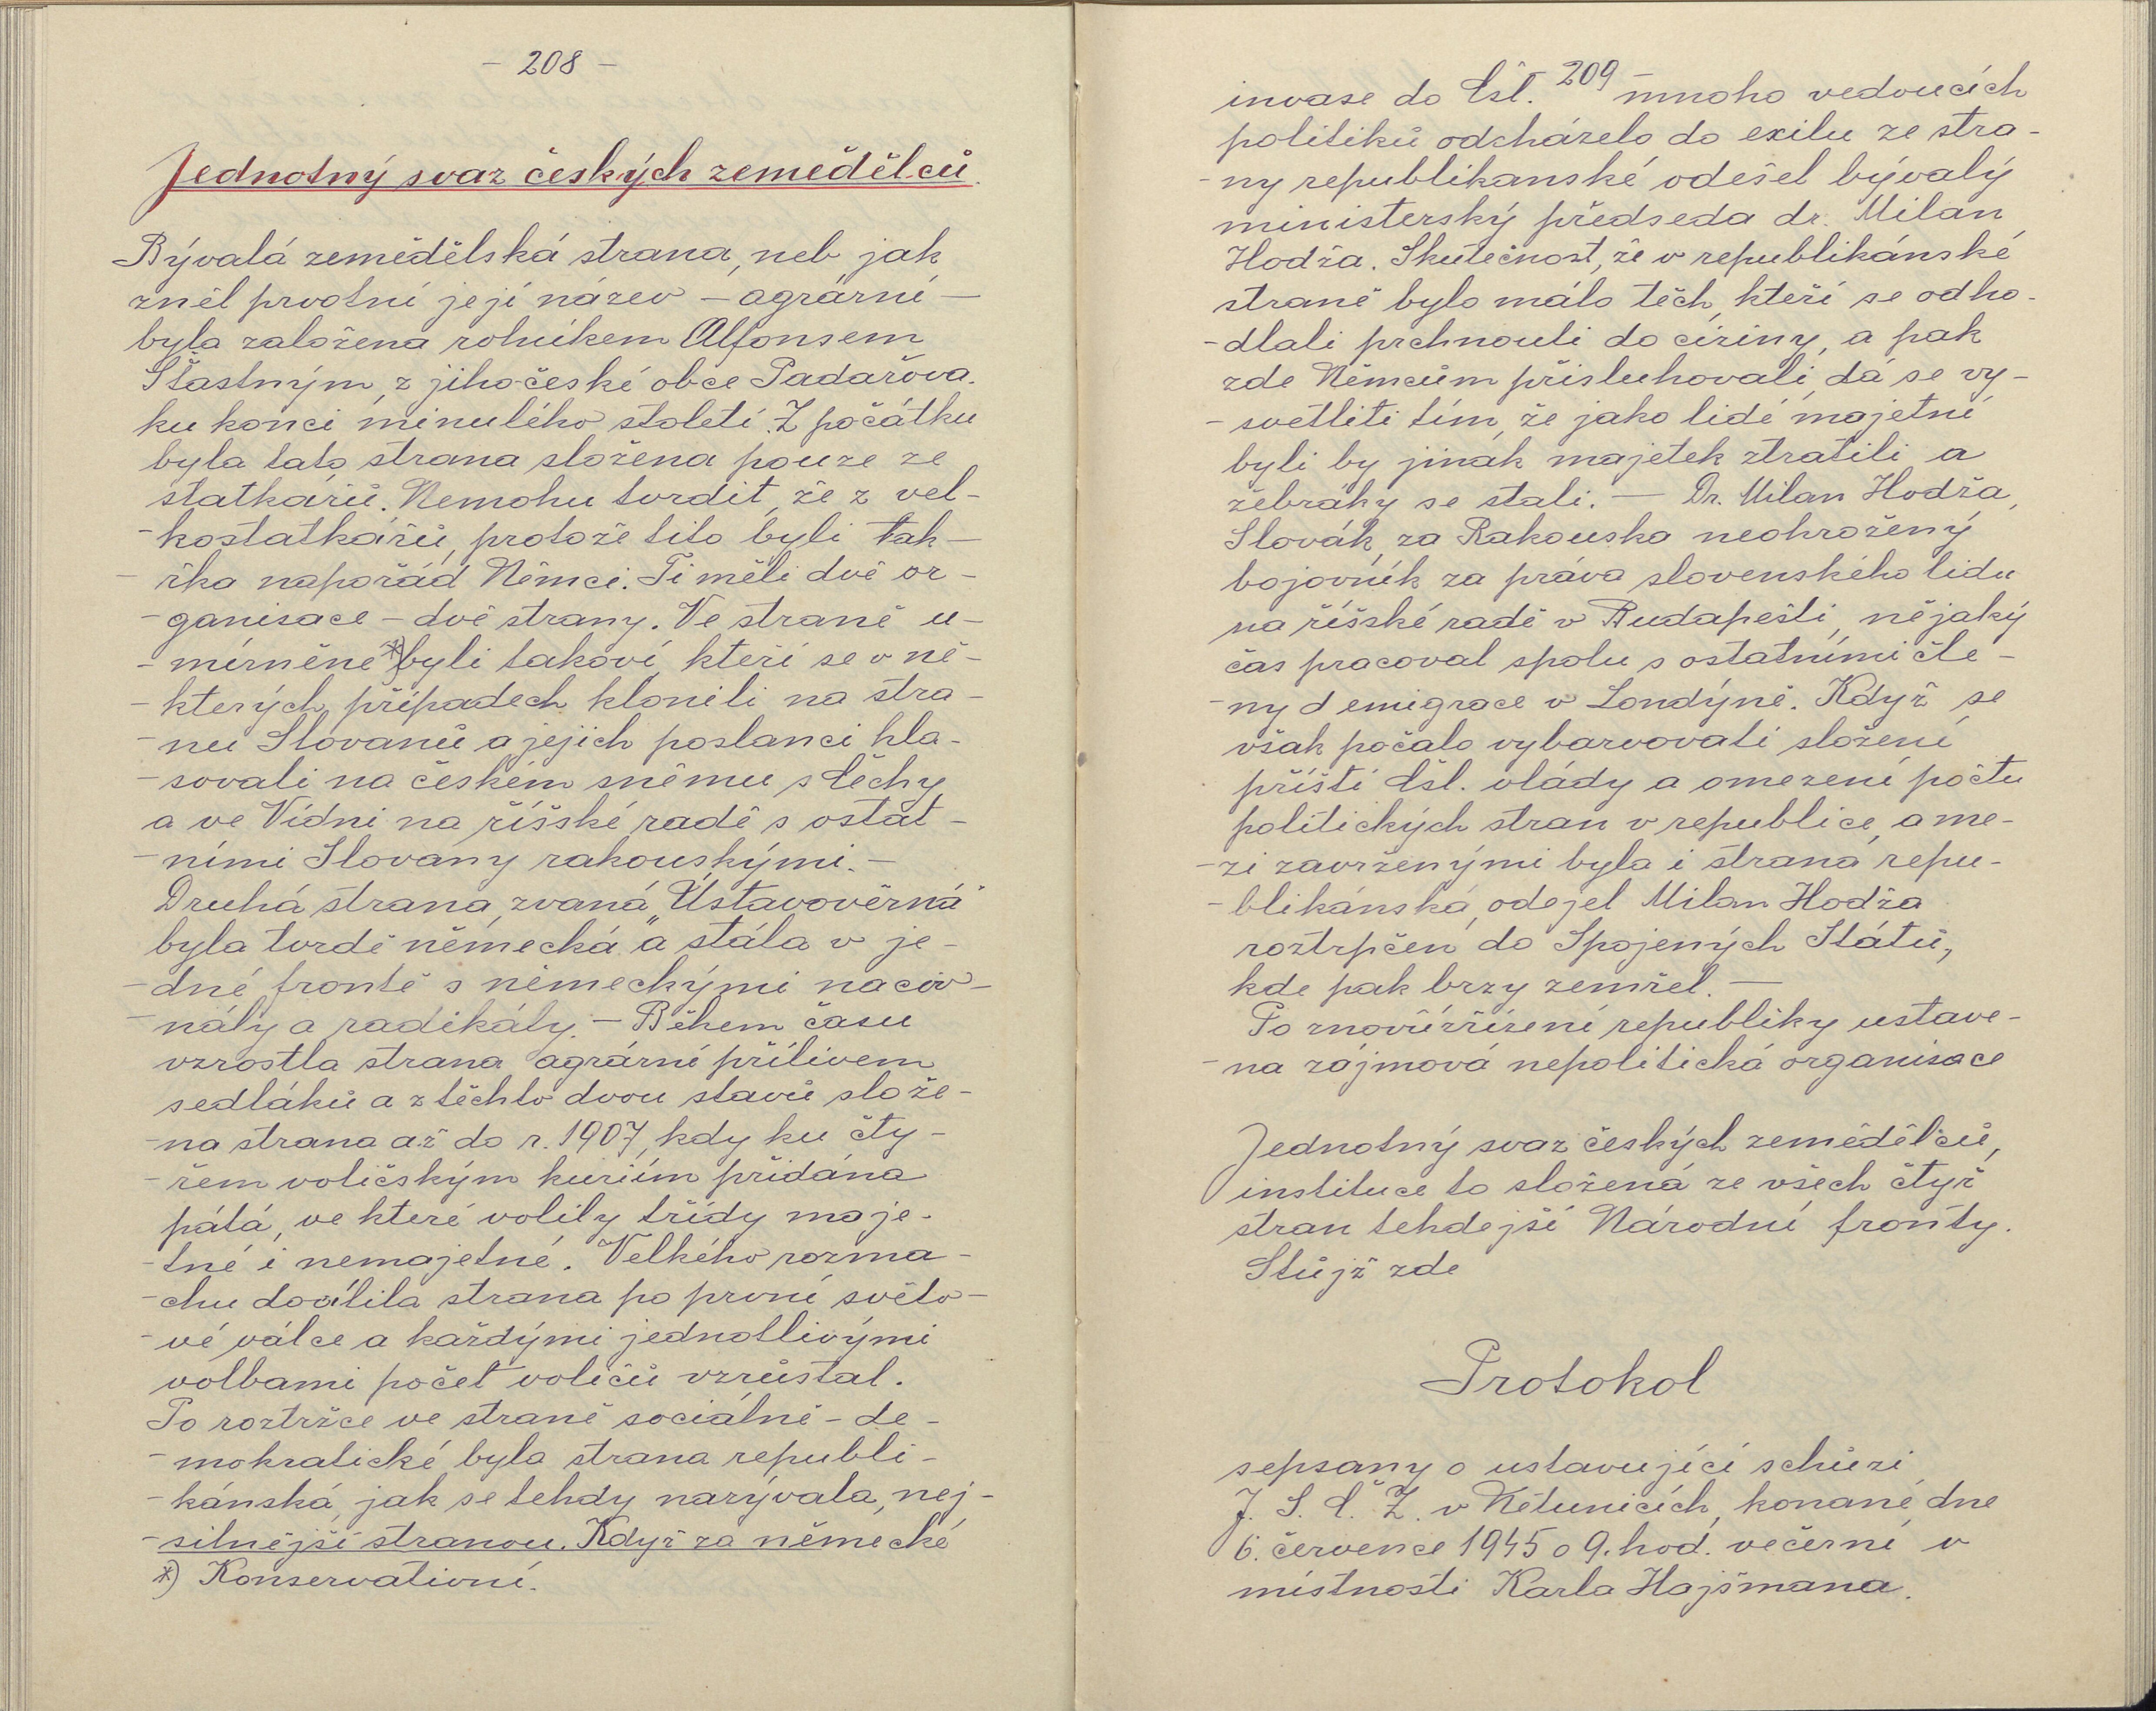 - 208 -
Jednotný svaz českých zemědělců.
Bývalá zemědělská strana, neb jak
zněl prvotní její název - agrární -
byla založena rolníkem Alfonsem
Šťastným, z jihočeské obce Padařova.
ku konci minulého století. Z počátku
byla tato strana složena pouze ze
statkářů. Nemohu tvrdit, že z vel-
-kostatkářů, protože tito byli tak-
- řka napořád Němci. Ti měli dvě or-
-ganisace - dvě strany. Ve straně u-
-mírněné *) byli takoví, kteří se v ně-
-kterých případech klonili na stra-
-nu Slovanů a jejich poslanci hla-
-sovali na českém sněmu s Čechy
a ve Vídni na říšské radě s ostat-
-ními Slovany rakouskými. -
Druhá strana, zvaná "Ústavověrná"
byla tvrdě německá a stála v je-
-dné frontě s německými nacio-
-nály a radikály. - Během času
vzrostla strana agrární přílivem
sedláků a z těchto dvou stavů slože-
-na strana až do r. 1907, kdy ku čty-
-řem voličským kuriím přidána
pátá, ve které volily třídy maje-
-tné i nemajetné. Velkého rozma-
-chu docílila strana po první světo-
-vé válce a každými jednotlivými
volbami počet voličů vzrůstal.
Po roztržce ve straně sociálně-de-
-mokratické byla strana republi-
-kánská, jak se tehdy nazývala, nej-
-silnější stranou. Když za německé
*) Konservativní.
209 -
invase do Čsl. mnoho vedoucích
politiků odcházelo do exilu ze stra-
-ny republikanské odešel bývalý
ministerský předseda dr. Milan
Hodža. Skutečnost, že v republikánské
straně bylo málo těch, kteří se odho-
-dlali prchnouti do ciziny, a pak
zde Němcům přisluhovali, dá se vy-
-světliti tím, že jako lidé majetní
byli by jinak majetek ztratili a
žebráky se stali. - Dr. Milan Hodža,
Slovák, za Rakouska neohrožený
bojovník za práva slovenského lidu
na říšské radě v Budapešti, nějaký
čas pracoval spolu s ostatními čle-
-ny d emigrace v Londýně. Když se
však počalo vybarvovati složení
příští čsl. vlády a omezení počtu
politických stran v republice, a me-
-zi zavrženými byla i strana repu-
-blikánská, odejel Milan Hodža
roztrpčen do Spojených Států,
kde pak brzy zemřel. -
Po znovuzřízení republiky ustave-
-na zájmová nepolitická organisace
Jednotný svaz českých zemědělců,
instituce to složená ze všech čtyř
stran tehdejší Národní fronty.
Stůjž zde
Protokol
sepsany o ustavující schůzi
J. S. Č. Z. v Kětunicích, konané dne
6. července 1945 o 9. hod. večerní v
místnosti Karla Hajšmana.